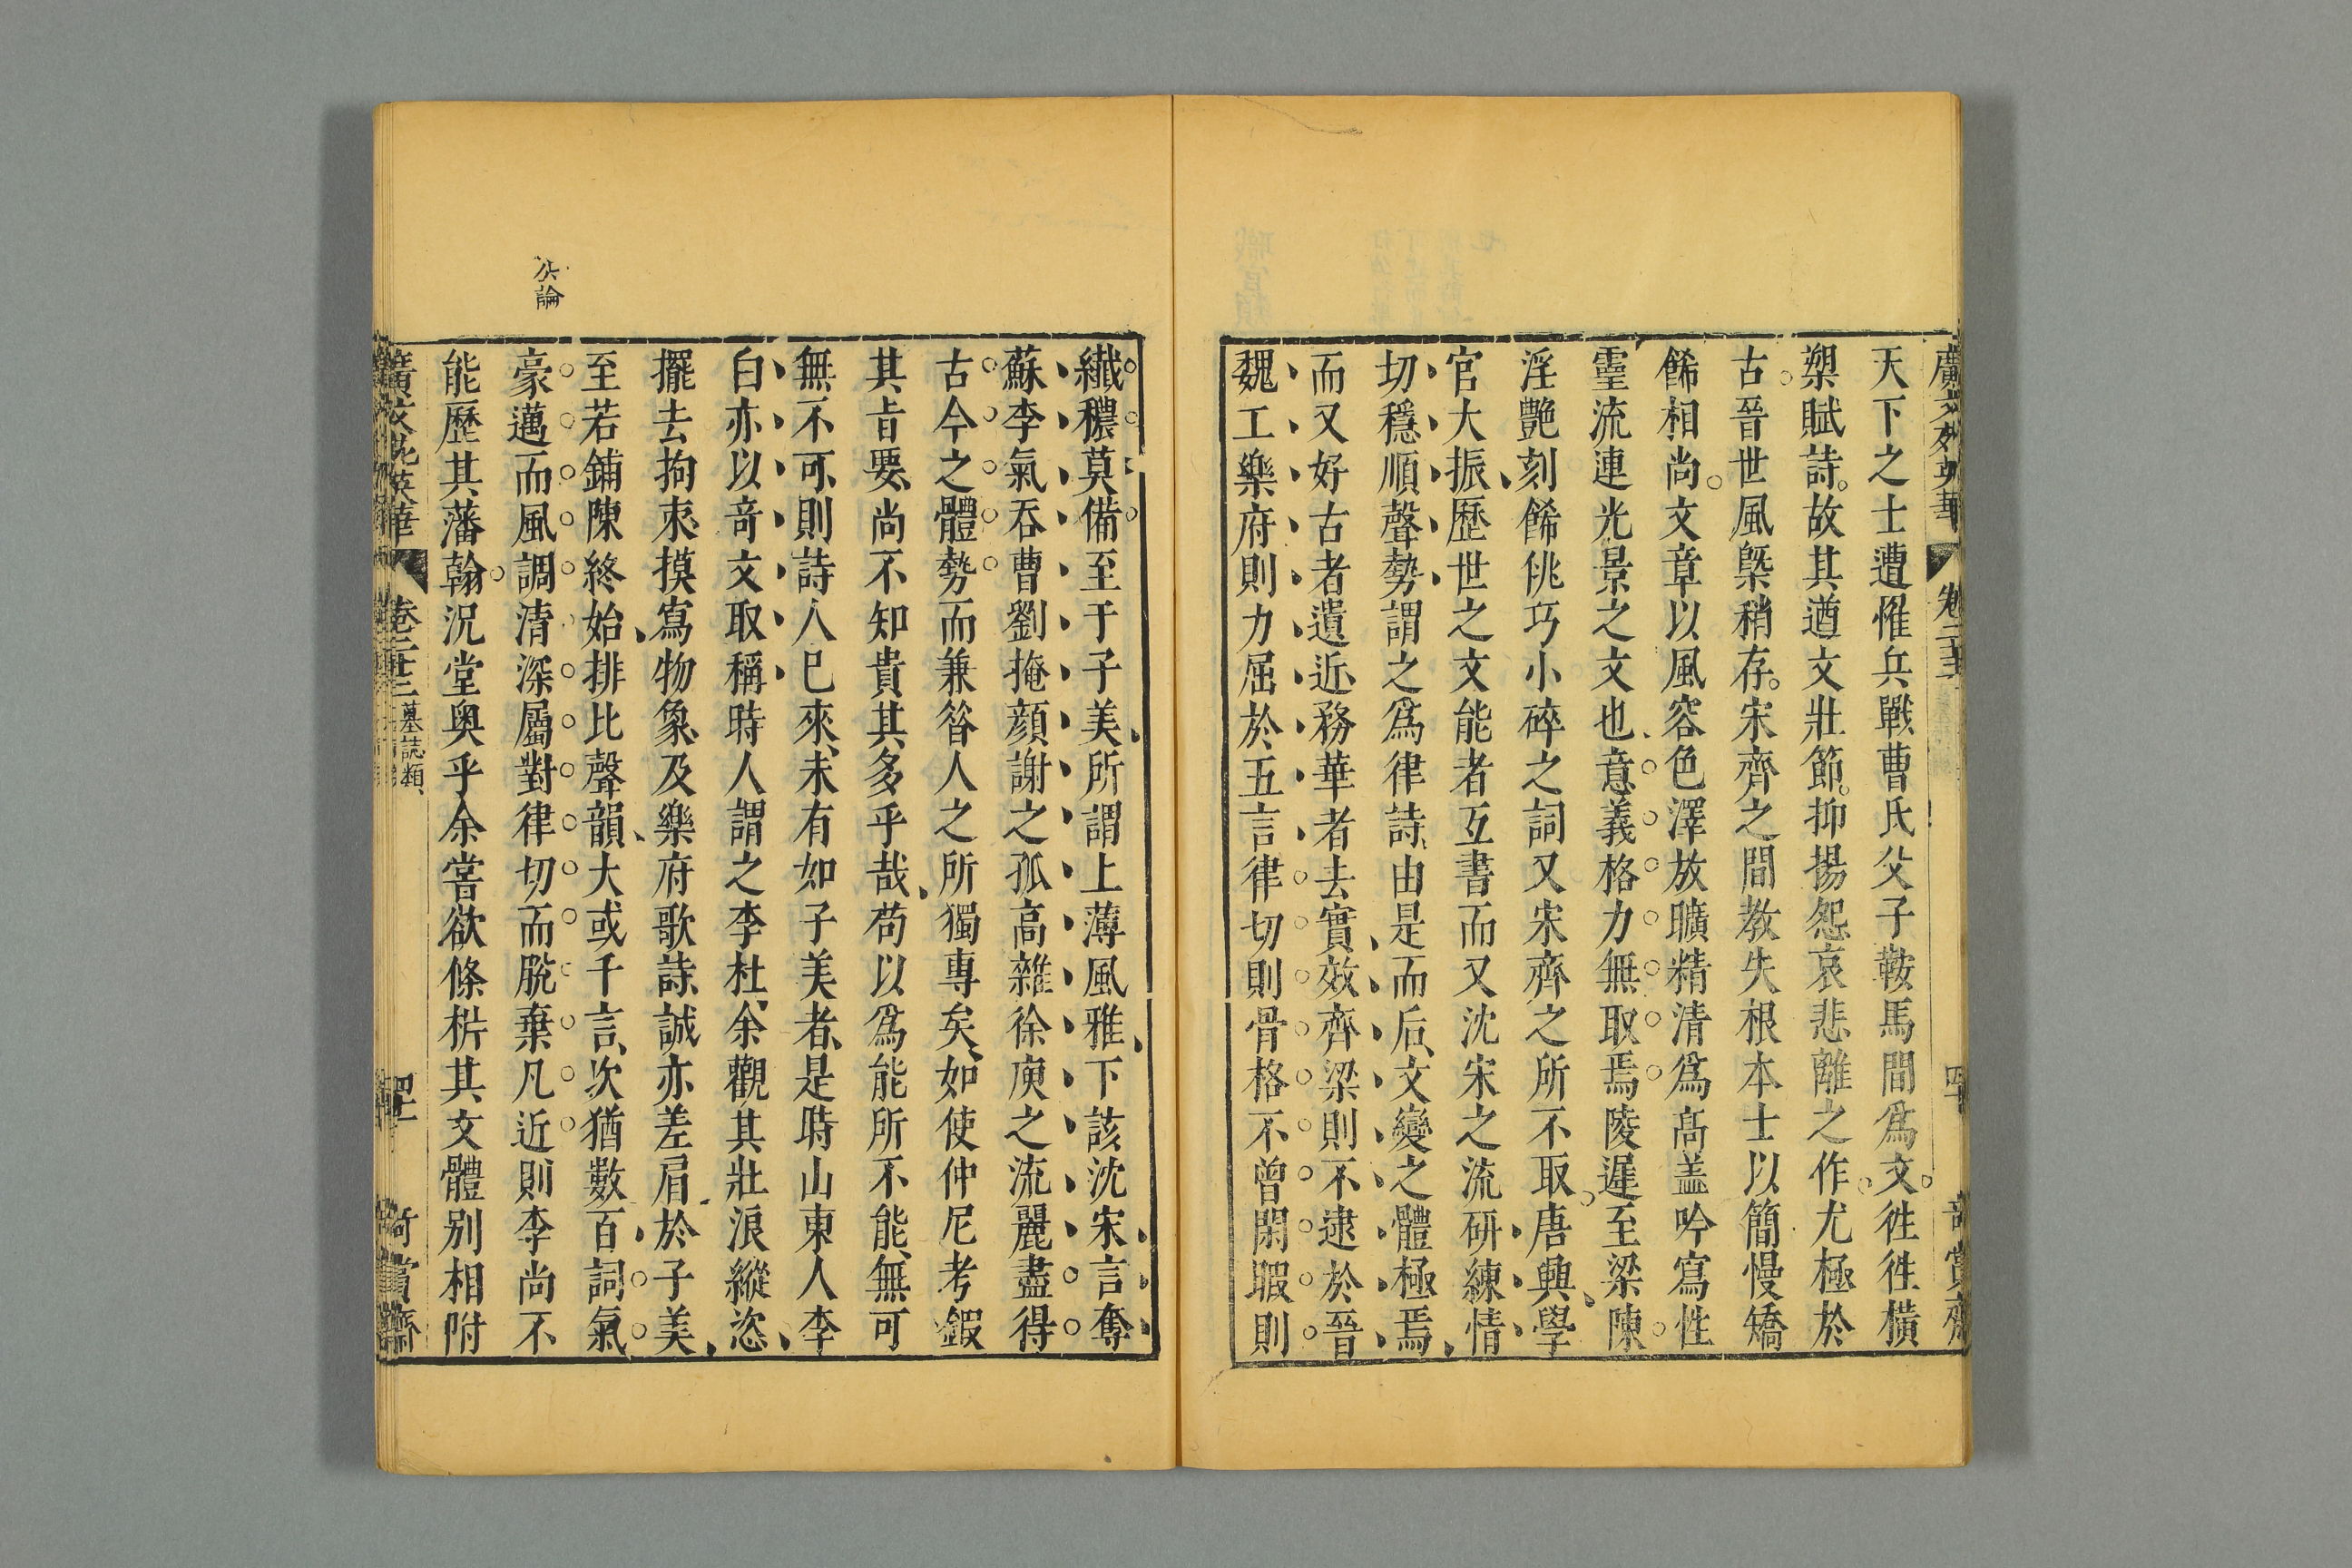 天下之士遭惟兵戰曹氏父子鞍馬間爲文徃徃橫
槊賦詩故其遒文壯節抑揚怨哀悲離之作尤極於
古晉世風槩稍存宋齊之間教失根本士以簡慢矯
餙相尚文章以風容色澤放曠精清爲髙盖吟寫性
靈流連光景之文也意義格力無取焉陵遲至梁陳
淫艶刻餙佻巧小碎之詞又宋齊之所不取唐興學
官大振歷世之文能者互書而又沈宋之流研練情
切穩順聲勢謂之爲律詩由是而后文變之體極焉
而又好古者遺近務華者去實效齊梁則不逮於晉
魏工樂府則力屈於五言律切則骨格不曾閑暇則
纖穠莫備至于子美所謂上薄風雅下該沈宋言奪
蘇李氣吞曹劉掩顔謝之孤高雜徐庾之流麗盡得
古今之體勢而兼昝人之所獨專矣如使仲尼考鍜
其㫖要尚不知貴其多乎哉苟以爲能所不能無可
無不可則詩人巳來未有如子美者是時山東人李
白亦以奇文取稱時人謂之李杜余觀其壯浪縱恣
擺去拘束摸寫物象及樂府歌詩誠亦差肩於子美
至若鋪陳終始排比聲韻大或千言次猶數百詞氣
豪邁而風調清深屬對律切而脫棄凡近則李尚不
能歷其藩翰况堂奥乎余嘗欲條析其文體别相附
公論
廣文苑英華
卷二十三
墓誌類
奇賞齋